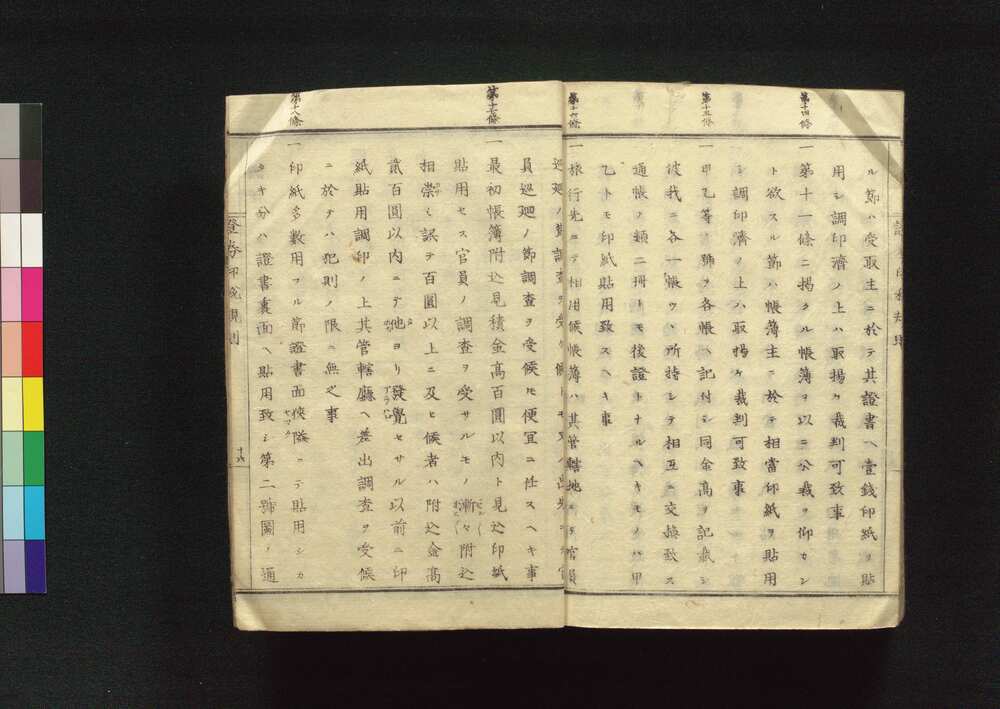 ル節ハ受取主ニ於テ其證書ヘ壹錢印紙ヲ貼
用シ調印濟ノ上ハ取揚ケ裁判可致事
第十四條
一第十一條ニ揭クル帳簿ヲ以ニ公裁ヲ仰カン
ト欲スル節ハ帳簿主ニ於テ相當印紙ヲ貼用
シ調印濟ノ上ハ取揚ケ裁判可致事
第十五條
一甲乙等聯ヲ各帳ヘ記付シ同金高ヲ記載シ
彼我ニ各一帳ツヽ所持シテ相互ニ交換致ス
通帳ノ類二冊トモ後證トナルヘキモノハ甲
乙トモ印紙貼用致スヘキ事
第十六條
一旅行先ニテ相用候帳簿ハ其管轄地ニテ官員
員巡廻ノ節調査ヲ受候モ便宜ニ任スヘキ事
第十七條
一最初帳簿附込見積金高百圓以内ト見込印紙
貼用セス官員ノ調査ヲ受サルモノ漸々附込
相崇ミ誤テ百圓以上ニ及ヒ候者ハ附込金高
貳百圓以内ニテ他ヨリ發覺セサル以前ニ印
紙貼用調印ノ上其管轄廳ヘ差出調査ヲ受候
ニ於テハ犯則ノ限ニ無之事
第十八條
一印紙多數用フル節證書面狹隘ニテ貼用シカ
タキ分ハ證書裏面ヘ貼用致シ第二號圖ノ通
證券印稅規則
十六